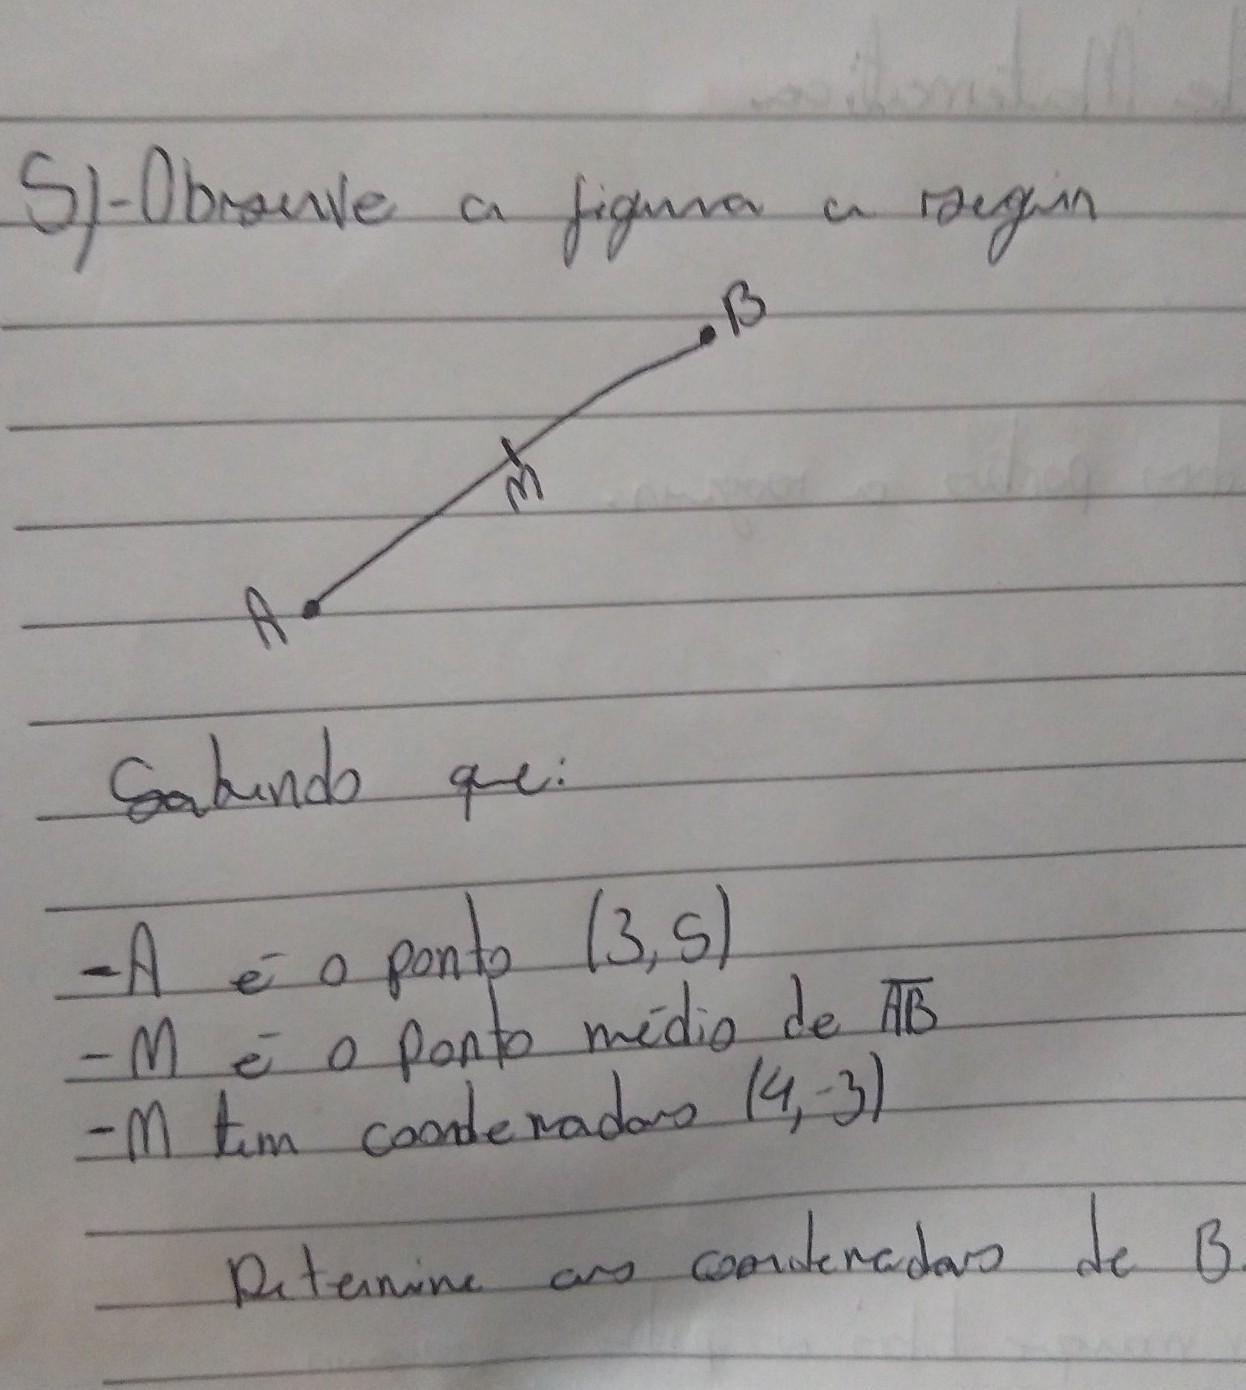 5)-Observe a figura a seguir
B
M
A
Sabendo que:
-A é o ponto (3,5)
-M é o ponto médio de A̅B̅
-M tem coordenadas (4,-3)
Determine as coordenadas de B.